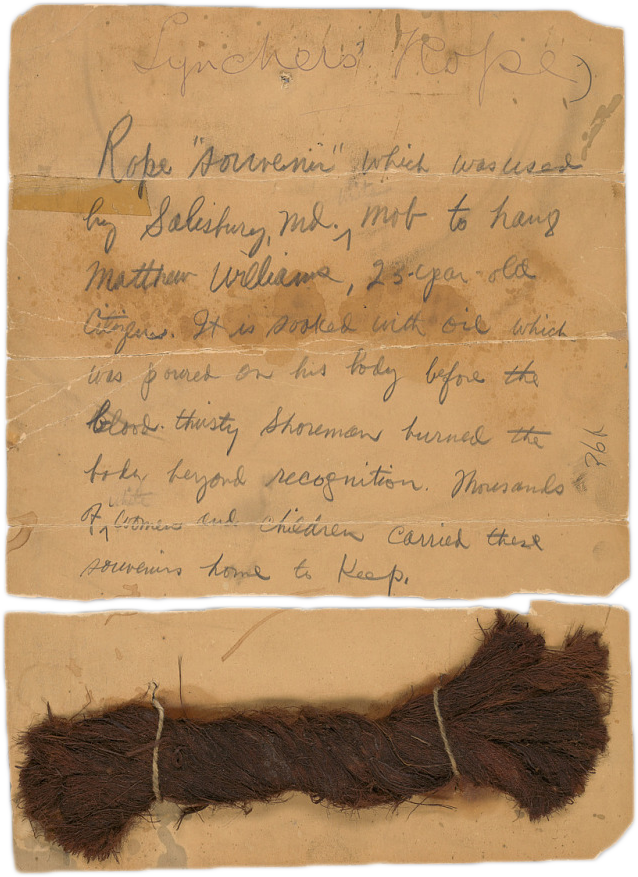 Lynchers' Rope)
Rope "souvenir" which was used
by Salisbury, Md. mob to hang
Matthew Williams, 23-year-old
Citizen. It is soaked with oil which
was poured on his body before the
blood-thirsty Shoreman burned the
body beyond recognition. Thousands
of white women and children carried these
souvenirs home to keep.